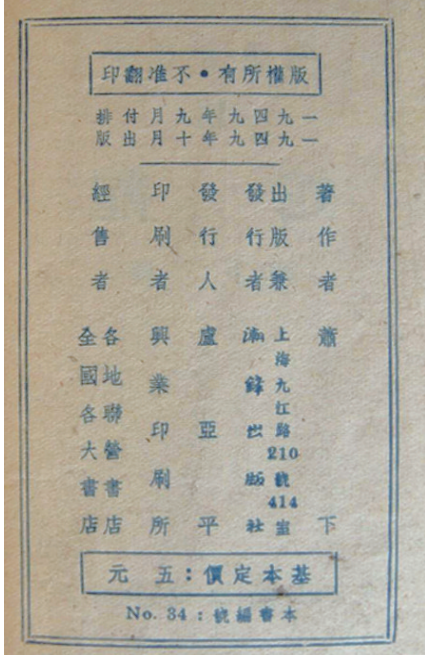 版權所有•不准翻印
一九四九年九月付排
一九四九年十月出版
著作者 蕭下
出版兼發行者
上海九江路210號414室
潮鋒出版社
發行人 盧亞平
印刷者 興業印刷所
經售者
各地聯營書店
全國各大書店
基本定價：五元
本書編號：No. 34